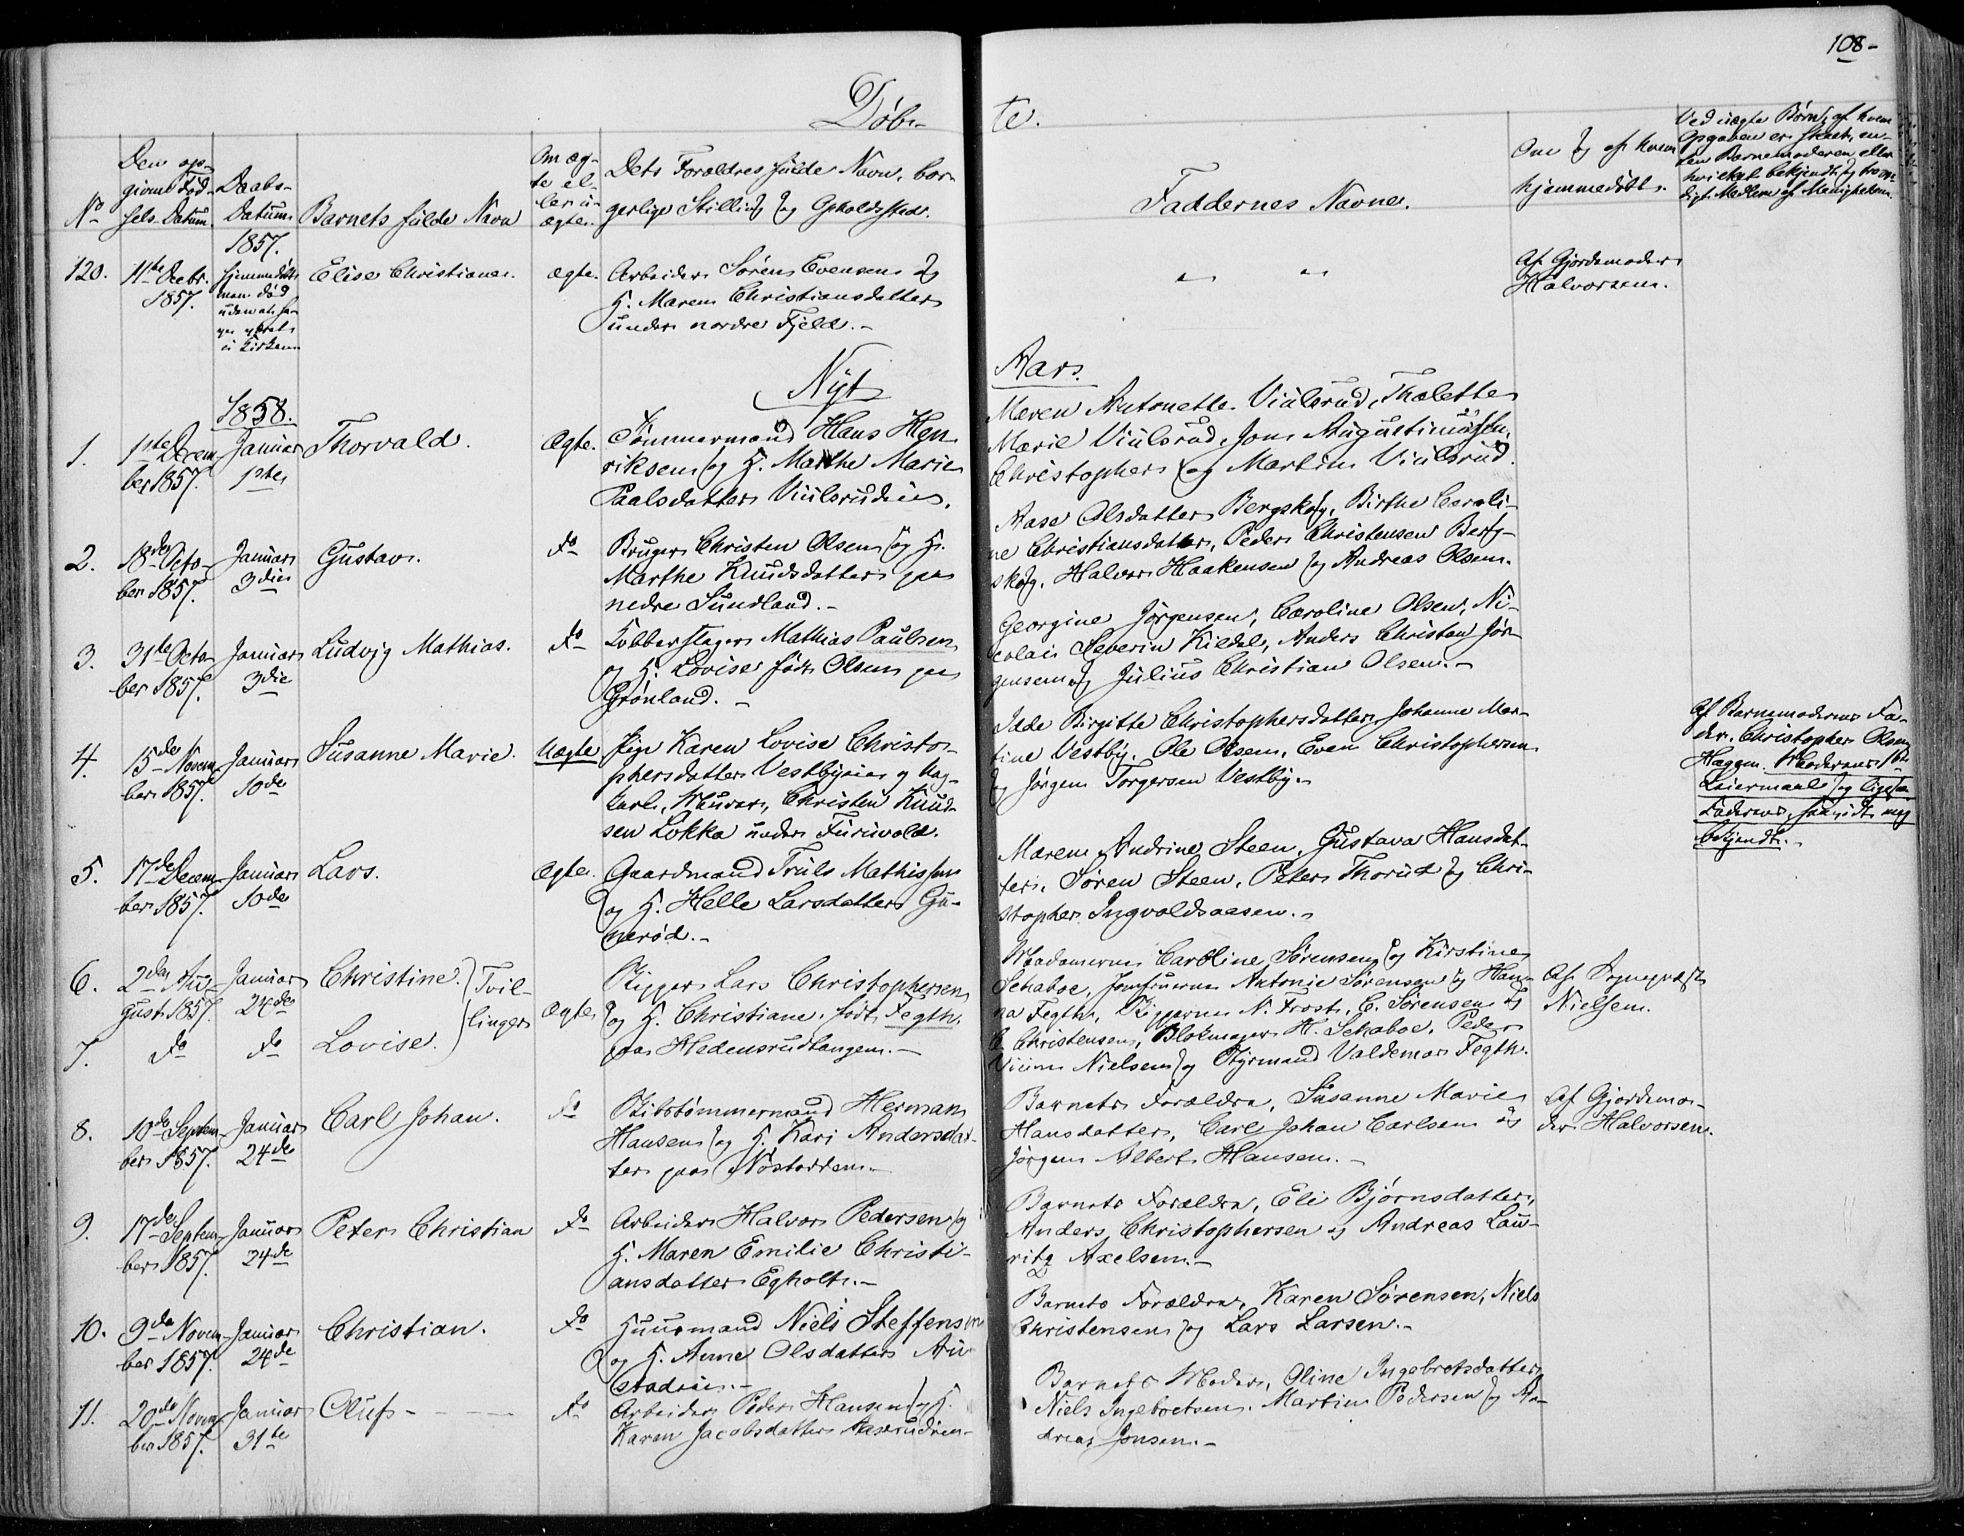 108-
Døb-
te.
No
Den op-
givne Fød-
sels Datum.
Daabs-
Datum
Barnets fulde Navn
Om æg-
te el-
ler u-
ægte.
Dets Forældres fulde Navn, bor-
gerlige Stilling og Opholdssted.
Faddernes Navne.
Om og af hvem
hjemmedøbt.
Ved uægte Børn, af hvem
Opgaven er skeet, en-
ten Barnemoderen eller
hvilket bekjendt og trovær-
digt Medlem af Menigheden.
1857.
120.
11te Decbr.
1857.
hjemmedøbt
men død
uden at ha-
ve været
i Kirken
Elise Christiane.
ægte.
Arbeider Søren Evensen og
H. Maren Christiansdatter
under nordre Fjeld.-
" "
Af Gjordemoder
Halvorsen.
Nyt
Aar.
1858.
1.
1ste Decem-
ber 1857.
Januar
1ste
Thorvald.
Ægte.
Tømmermand Hans Hen-
riksen og H. Marthe Marie
Paalsdatter Viulsrudeie.
Maren Antonette Viulsrud, Tholette
Marie Viulsrud, Jon Augustinussen,
Christopher og Martin Viulsrud.
2.
18de Octo-
ber 1857.
Januar
3die
Gustav.
do
Bruger Christen Olsen og H.
Marthe Knudsdatter paa
nedre Sundland.-
Aase Olsdatter Bergskog, Birthe Caroli-
ne Christiansdatter, Peder Christensen Berg-
skog, Halvor Haakensen og Andreas Olsen.
3.
31te Octo-
ber 1857.
Januar
3die
Ludvig Mathias.
do
Kobberslager Mathias Paulsen
og H. Lovise født Olsen paa
Grønland.-
Georgine Jørgensen, Caroline Olsen, Ni-
colai Severin Kildal, Anders Christian Jør-
gensen og Julius Christian Olsen.-
4.
15de Novem-
ber 1857.
Januar
10de
Susanne Marie.
Uægte
Pige Karen Lovise Christo-
phersdatter Vestbyeie og Ung-
karl, Murer, Christen Knud-
sen Løkka under Furuvald.
Birgitte Christophersdatter, Johanne Mar-
tine Vestby, Ole Olsen, Even Christophersen
og Jørgen Torgersen Vestby.
Af Barnemoderens Fa-
der, Christopher Olsen
Haggen. Moderens 1ste
Leiermaal og ligesaa
Faderens, saavidt mig
bekjendt.
5.
17de Decem-
ber 1857.
Januar
10de
Lars.
Ægte.
Gaardmand Truls Mathissen
og H. Helle Larsdatter Gu-
nerød.-
Maren Andrine Steen, Gustava Hansdat-
ter, Søren Steen, Peter Thorud og Chri-
stopher Ingvoldsaasen.
6.
2den Au-
gust 1857.
Januar
24de
Christine.
Tvil-
linger
Ægte.
Skipper Lars Christophersen
og H. Christiane født Fegth.
paa Hedensrudtangen.-
Madamerne Caroline Sørensen og Kirstine
Schaboe, Jomfruerne Antonie Sørensen og Han-
na Fegth, Skipperne N. Frost, C. Sørensen og
C. Christensen, Blokmager H. Schaboe, Peder
Nielsen og Styrmand Valdemar Fegth.
Af Sognepræst
Nielsen.
7.
do
do
Lovise.
8.
10de Septem-
ber 1857.
Januar
24de
Carl Johan.
do
Skibstømmermand Herman
Hansen og H. Kari Andersdat-
ter paa Nøstodden.
Barnets Forældre, Susanne Marie
Hansdatter, Carl Johan Carlsen og
Jørgen Albert Hansen.-
Af Gjordemo-
der Halvorsen.
9.
17de Septem-
ber 1857.
Januar
24de
Peter Christian
do
Arbeider Halvor Pedersen og
H. Maren Emilie Christi-
ansdatter Egholt.-
Barnets Forældre, Eli Bjørnsdatter,
Anders Christophersen og Andreas Lau-
ritz Axelsen.-
10.
9de Novem-
ber 1857.
Januar
24de
Christian.
do
Huusmand Niels Steffensen
og H. Anne Olsdatter Au-
stadeie.-
Barnets Forældre, Karen Sørensen, Niels
Christensen og Lars Larsen.-
11.
20de Novem-
ber 1857.
Januar
31te
Oluf-
do
Arbeider Peder Hansen og H.
Karen Jacobsdatter Aasrudeie-
Barnets Moder, Oline Ingebretsdatter,
Niels Ingebretsen, Martin Pedersen og An-
dreas Jonsen.-